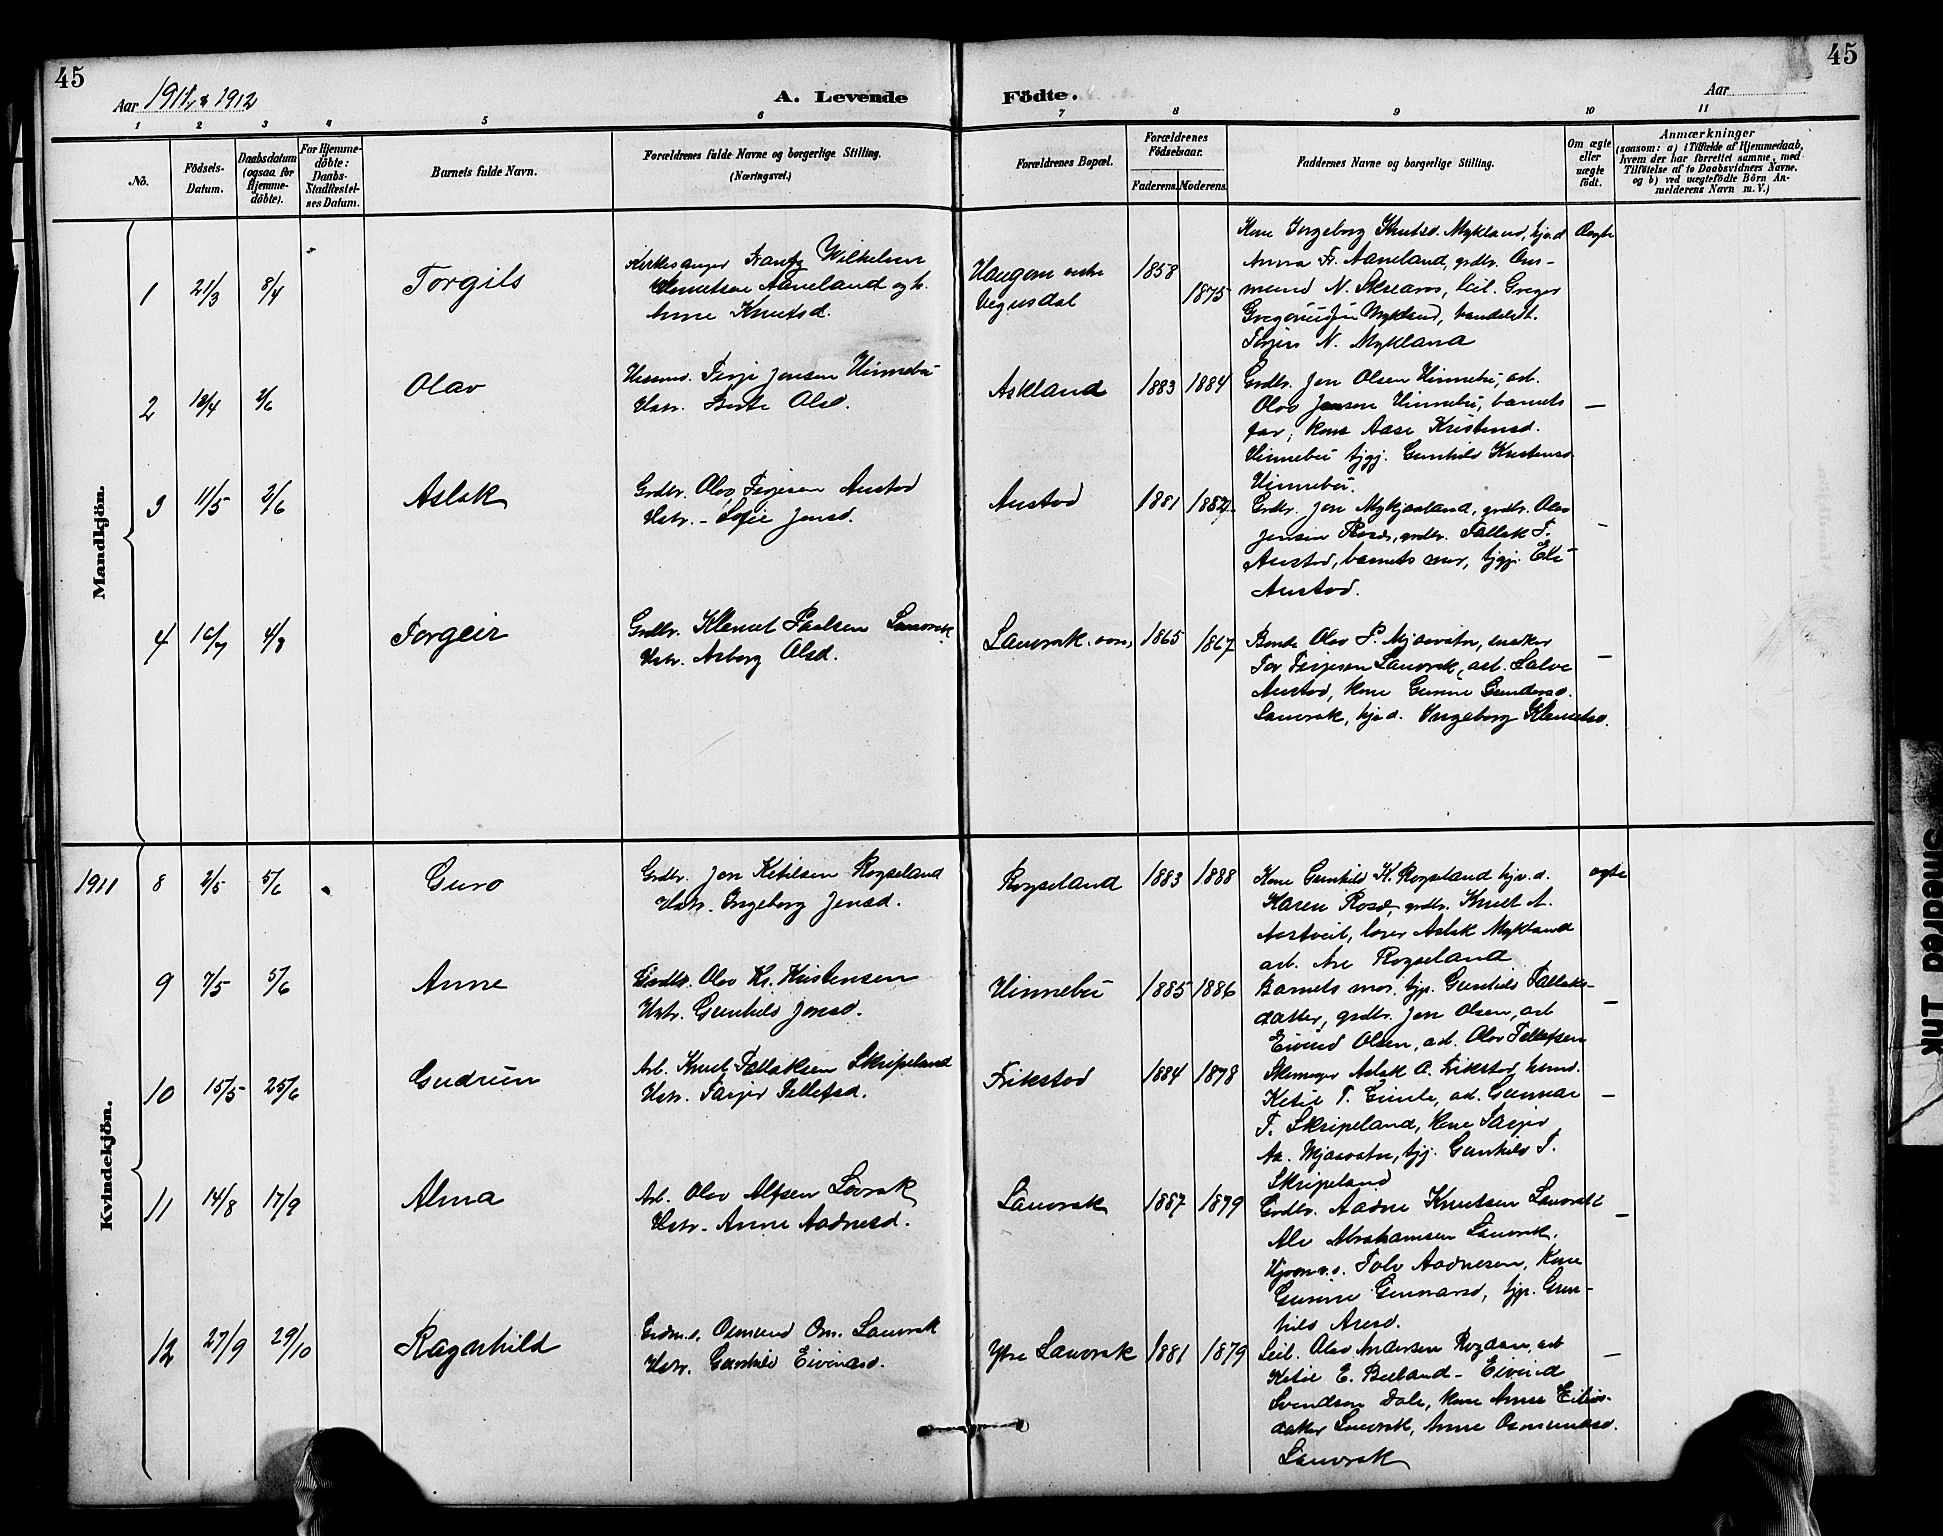 45
45
Aar 1911, & 1912
A. Levende
Födte.
Aar
1 2 3 4 5 6 7 8 9 10 11
No.
Födsels-
Datum.
Daabsdatum
(ogsaa for
Hjemme-
döbte).
For Hjemme-
döbte:
Daabs-
Stadfæstel-
ses Datum.
Barnets fulde Navn.
Forældrenes fulde Navne og borgerlige Stilling.
(Næringsvei.)
Forældrenes Bopæl.
Forældrenes
Födselsaar.
Faderens. Moderens.
Faddernes Navne og borgerlige Stilling.
Om ægte
eller
uægte
födt.
Anmærkninger
(saasom: a) i Tilfælde af Hjemmedaab,
hvem der har forrettet samme, med
Tilföielse af to Daabsvidners Navne,
og b) ved uægtefödte Börn An-
melderens Navn m. V.)
Mandkjön.
1 21/3 8/4 Torgils
Kirkesanger Frantz Wilhelm
Knutsen Aaneland og h.
Anne Knutsd.
Haugom
Vegusdal
1858 1875
Kone Ingeborg Knutsd. Mykland, hjv.d
Anna Fr. Aaneland, grdbr. Os-
mund N. Skreros, leil. Greger
Gregoriussen Mykland, handelsbt.
Torjus N. Mykland
Aegte
2 18/4 2/6 Olav
Husmd. Terje Jensen Hinnebu
Hstr. Berte Olsd.
Askland
1883 1884
Grdbr. Jon Olsen Hinnebu, arb.
Olav Jensen Hinnebu, barnets
far, kone Aase Kristensd.
Hinnebu tjpg. Gunhild Kristensd
Hinnebu.
—
3 11/5 2/6 Aslak
Grdbr. Olav Terjesen Austad
Hstr. - Sofie Jensd.
Austad
1881 1882
Grdbr. Jon Mykjaaland, grdbr. Olav
Jensen Rosö, grdbr. Tallak T.
Austad, barnets mor, tjpg. Eli
Austad.
—
4 16/7 4/8 Torgeir
Grdbr. Klemet Paalsen Lauvrak
Hstr. Asborg Olsd.
Lauvrak
1865 1867
Bonde Olav P. Mjaavatn, snekker
Tor Terjesen Lauvrak, arb. Salve
Austad, kone Gunne Gundersd.
Lauvrak, hjv.d. Ingeborg Klemetsd.
—
Kvindekjön.
1911 8 2/5 5/6 Guro
Grdbr. Jon Ketilsen Røyseland
Hstr. Ingeborg Jensd.
Røyseland
1883 1888
Kone Gunhild K. Røyseland hjv.d.
Karen Rosö, grdbr. Knut A.
Aastveit, lærer Aslak Mykland
arb. Are Røyseland
ægte
9 7/5 5/6 Anne
Grdbr. Olav Kr. Kristensen
Hstr. Gunhild Jonsd.
Hinnebu
1885 1886
Barnets mor, tjp. Gunhild Tallaks-
datter, grdbr. Jon Olsen, arb
Eivind Olsen, ad. Olav Tellefsen
—
10 15/5 25/6 Gudrun
Arb. Knut Tallaksen Skripeland
Hstr. Tarjer Tellefsd.
Frikstad
1884 1878
Skomager Aslak O. Frikstad, husmd.
Ketil T. Eimle, ad. Gunnar
T. Skripeland, kone Tarjer
Aa. Mjaavatn, tjpg. Gunhild T.
Skripeland
—
11 14/8 17/9 Alma
Arb. Olav Alfsen Lövrak
Hstr. Anne Aadnesd.
Lauvrak
1887 1879
Grdbr. Aadne Knutsen Lauvrak
Alv Abrahamsen Lauvrak,
Tolv Aadnesen, Kone
Gunne Gunnarsd, tjp. Gun-
hild Aresd.
—
12 27/9 29/10 Ragnhild
Grdmd. Osmund Osm. Lauvrak
Hstr. Gunhild Eivindsd.
Ytre Lauvrak
1881 1879
Leil. Olav Andersen Rogdan, arb
Ketil E. Beeland - Eivind
Svendsen Dale, kone Anne Eivinds-
datter Lauvrak, Anne Osmundsd.
Lauvrak
—
Smeared Ink